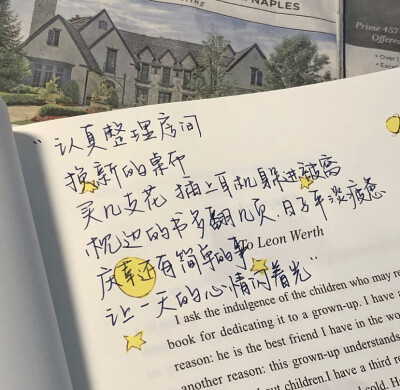 NAPLES
Prime 457
Offered
"认真整理房间
换新的桌布
买几支花 插上耳机躲进被窝
枕边的书多翻几页.日子平淡疲惫
庆幸还有简单的事
让一天的心情闪着光"
To Leon Werth
I ask the indulgence of the children who may re
book for dedicating it to a grown-up. I have a
reason: he is the best friend I have in the wo
another reason: this grown-up understands
children. I have a third r
cold. H